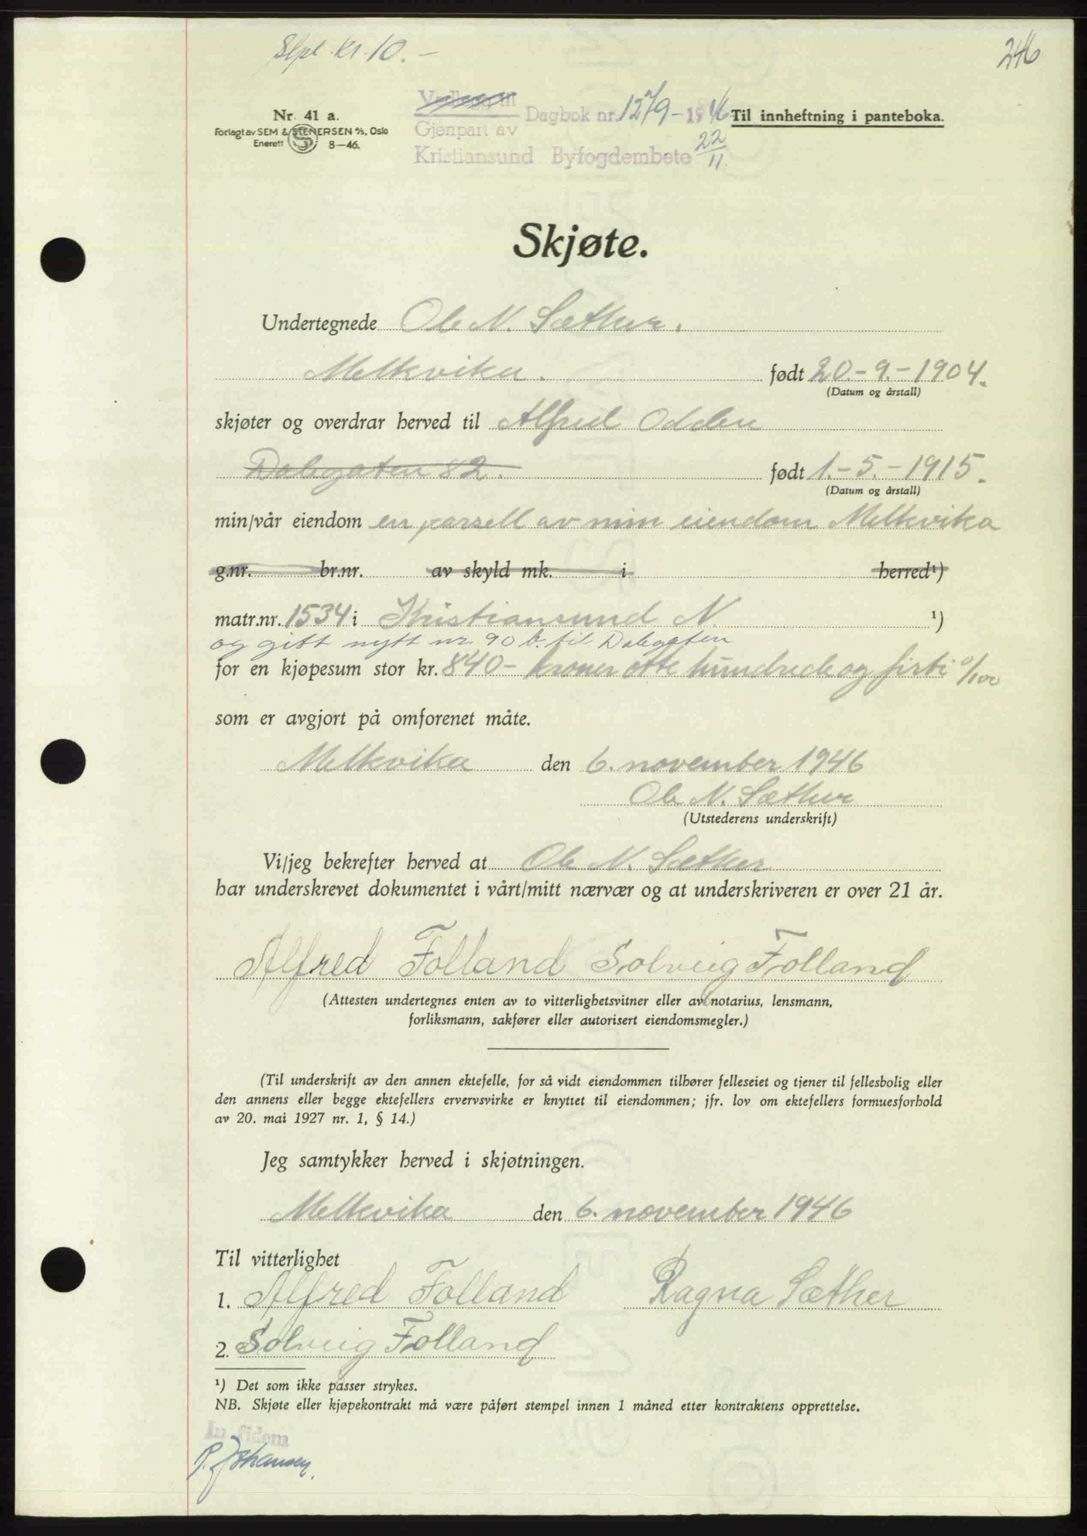 Stpl. kr. 10.-
246
Nr. 41 a.
Forlagt av SEM & STENERSEN A/S, Oslo
Enerett 8-46.
Dagbok nr. 1279 - 1946
Gjenpart av
Kristiansund Byfogdembete 22/11.
Til innheftning i panteboka.
Skjøte.
Undertegnede Ole N. Sæther.
Melkvika. født 20.-9.-1904.
(Datum og årstall)
skjøter og overdrar herved til Alfred Odden
Dalegaten 82. født 1.-5.-1915.
(Datum og årstall)
min/vår eiendom en parsell av min eiendom Melkvika
g.nr. br.nr. av skyld mk. i herred¹)
matr.nr. 1534 i Kristiansund N. ¹)
og gitt nytt nr. 90 b. til Dalegaten
for en kjøpesum stor kr. 840- kroner otte hundrede og firti 0/100
som er avgjort på omforenet måte.
Melkvika den 6. november 1946
Ole N. Sæther
(Utstederens underskrift)
Vi/jeg bekrefter herved at Ole N. Sæther
har underskrevet dokumentet i vårt/mitt nærvær og at underskriveren er over 21 år.
Alfred Folland Solveig Folland
(Attesten undertegnes enten av to vitterlighetsvitner eller av notarius, lensmann,
forliksmann, sakfører eller autorisert eiendomsmegler.)
(Til underskrift av den annen ektefelle, for så vidt eiendommen tilhører felleseiet og tjener til fellesbolig eller
den annens eller begge ektefellers ervervsvirke er knyttet til eiendommen; jfr. lov om ektefellers formuesforhold
av 20. mai 1927 nr. 1, § 14.)
Jeg samtykker herved i skjøtningen.
Melkvika den 6. november 1946
Til vitterlighet
1. Alfred Folland Ragna Sæther
2. Solveig Folland
¹) Det som ikke passer strykes.
NB. Skjøte eller kjøpekontrakt må være påført stempel innen 1 måned etter kontraktens opprettelse.
In fidem
P. Johansen.